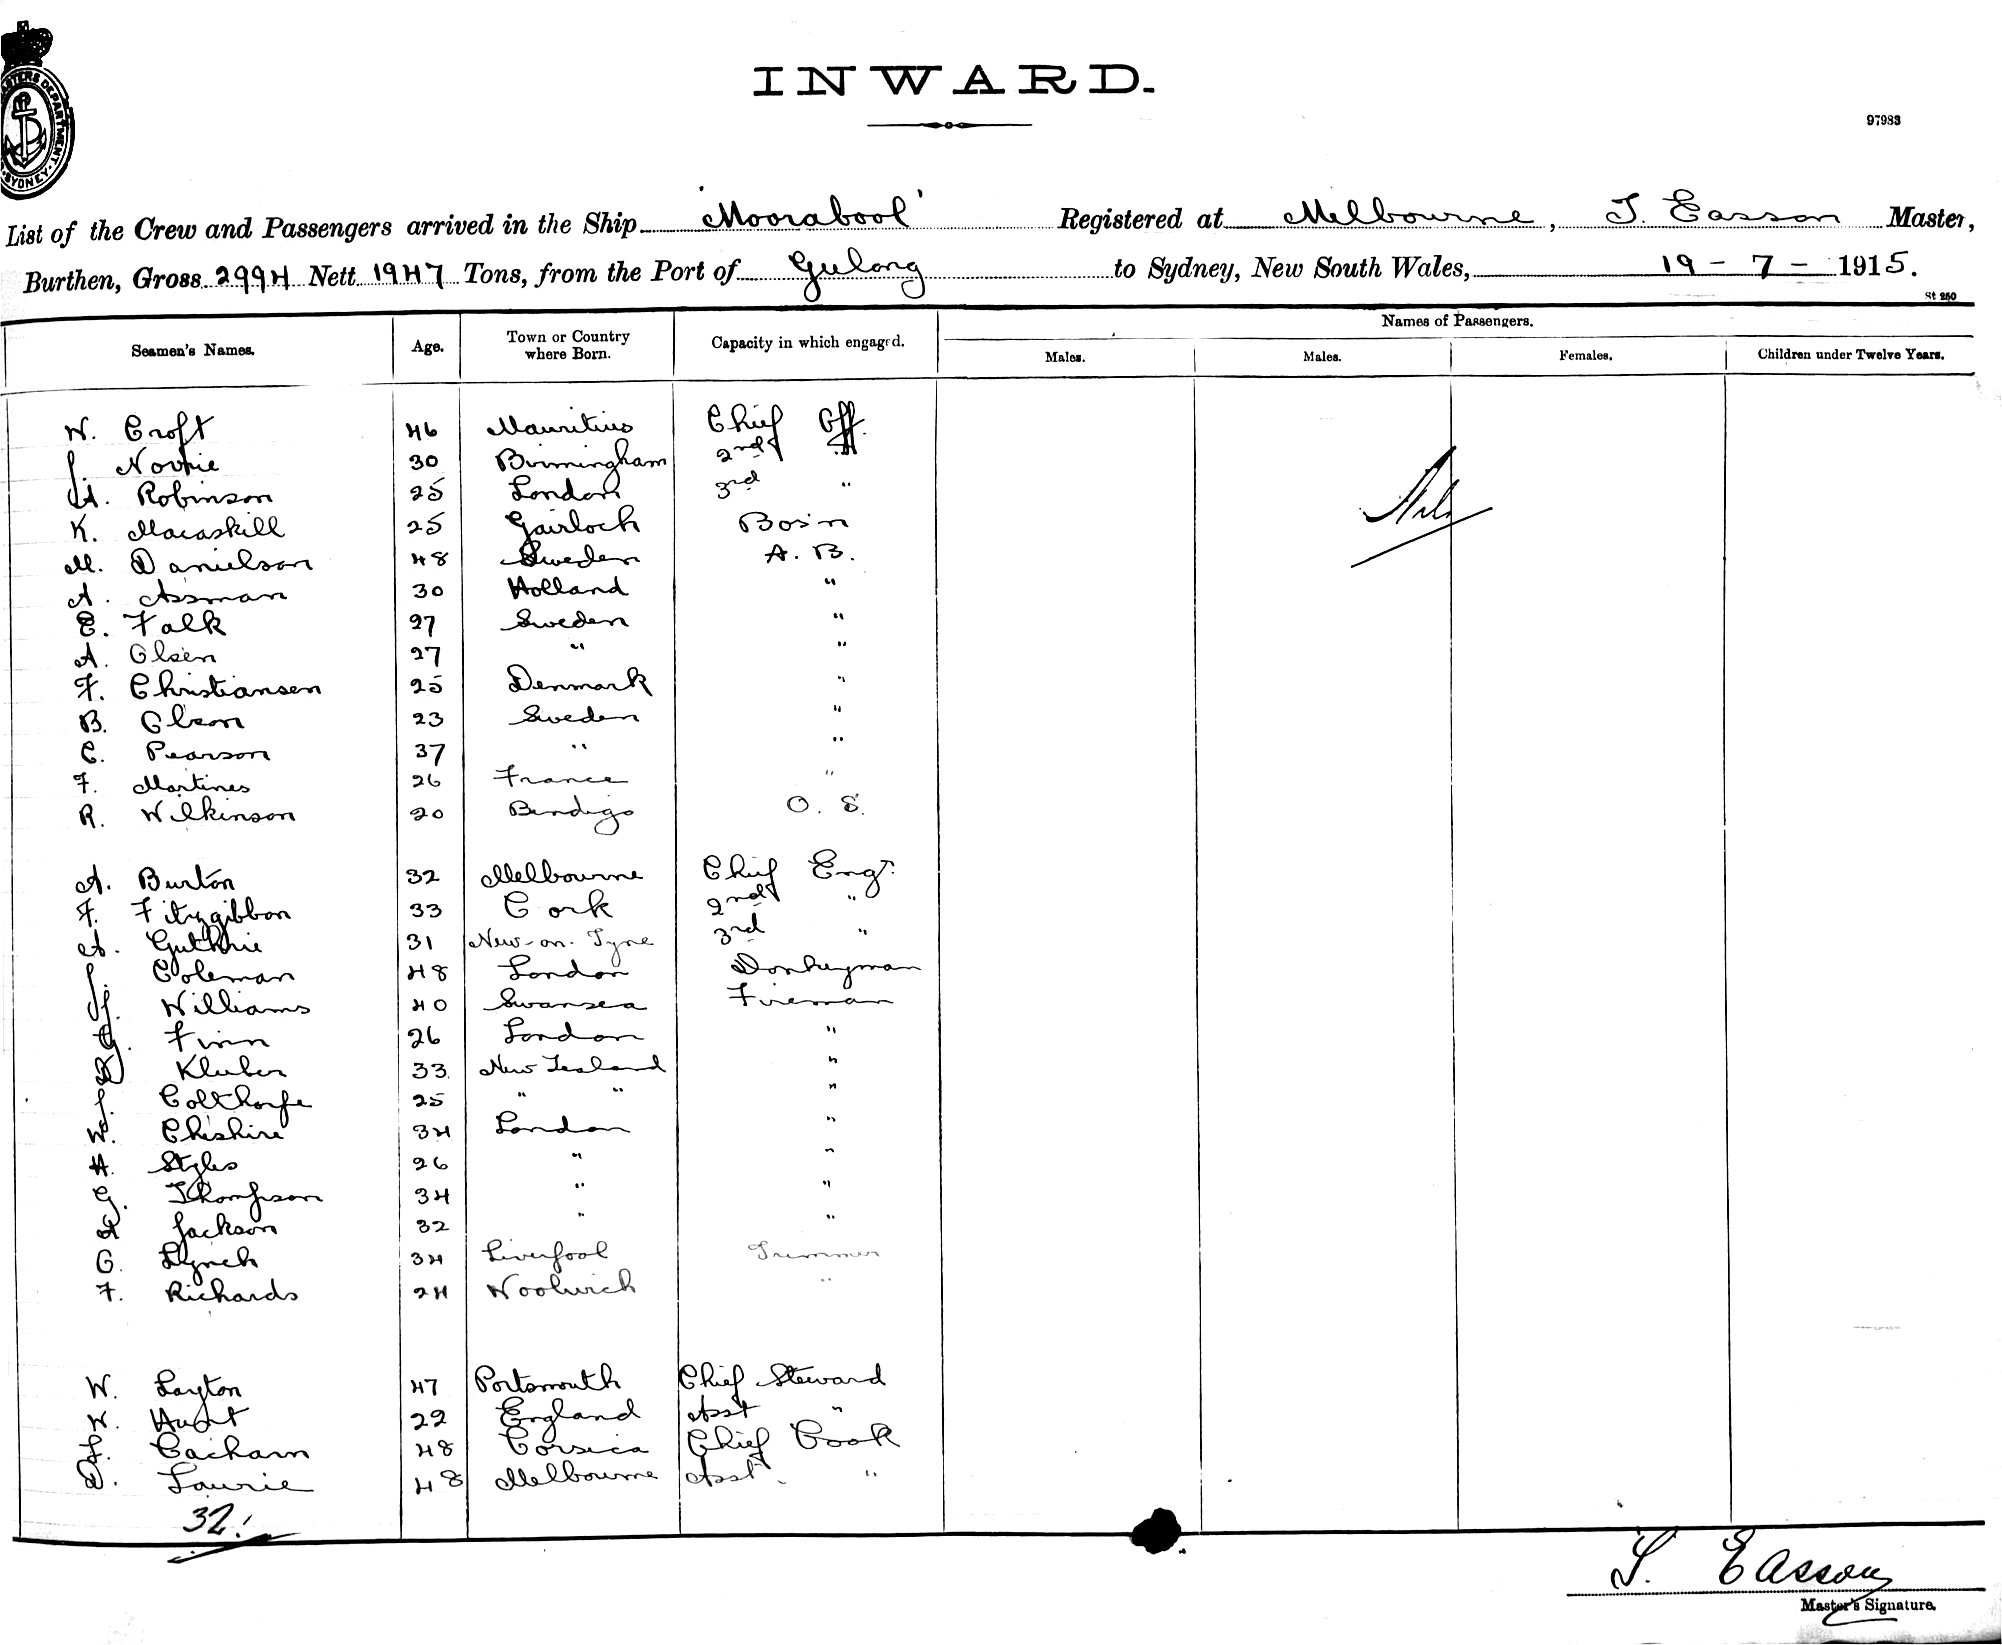 INWARD.
97983
MASTERS DEPARTMENT. SYDNEY.
List of the Crew and Passengers arrived in the Ship 'Moorabool' Registered at Melbourne, T. Easson Master,
Burthen, Gross 2994 Nett 1947 Tons, from the Port of Gulong to Sydney, New South Wales, 19 - 7 - 1915.
St 250
Names of Passengers.
Seamen's Names. Age. Town or Country where Born. Capacity in which engaged. Males. Males. Females. Children under Twelve Years.
W. Croft 46 Mauritius Chief Off.
J. 30 Birmingham 2nd "
A. Robinson 25 London 3rd "
K. Macaskill 25 Gairloch Bos'n
M. Danielson 48 Sweden A. B.
A. Assman 30 Holland "
E. Falk 27 Sweden "
A. Olsen 27 " "
F. Christiansen 25 Denmark "
B. Olson 23 Sweden "
C. Pearson 37 " "
F. Martines 26 France "
R. Wilkinson 20 Bendigo O. S.
A. Burton 32 Melbourne Chief Engr.
F. Fitzgibbon 33 Cork 2nd "
A. Guthrie 31 New-on-Tyne 3rd "
J. Coleman 48 London Donkeyman
J. Williams 40 Swansea Fireman
Finn 26 London "
Kluber 33 New Zealand "
J. Colthorpe 25 " " "
W. Cheshire 34 London "
H. Styles 26 " "
G. Thompson 34 " "
A Jackson 32 " "
G. Lynch 34 Liverpool Trimmer
F. Richards 24 Woolwich "
W. Layton 47 Portsmouth Chief Steward
W. Hunt 22 England Asst "
F. Cacham 48 Corsica Chief Cook
D. Laurie 48 Melbourne Asst. "
32.
Nil
T. Easson
Master's Signature.